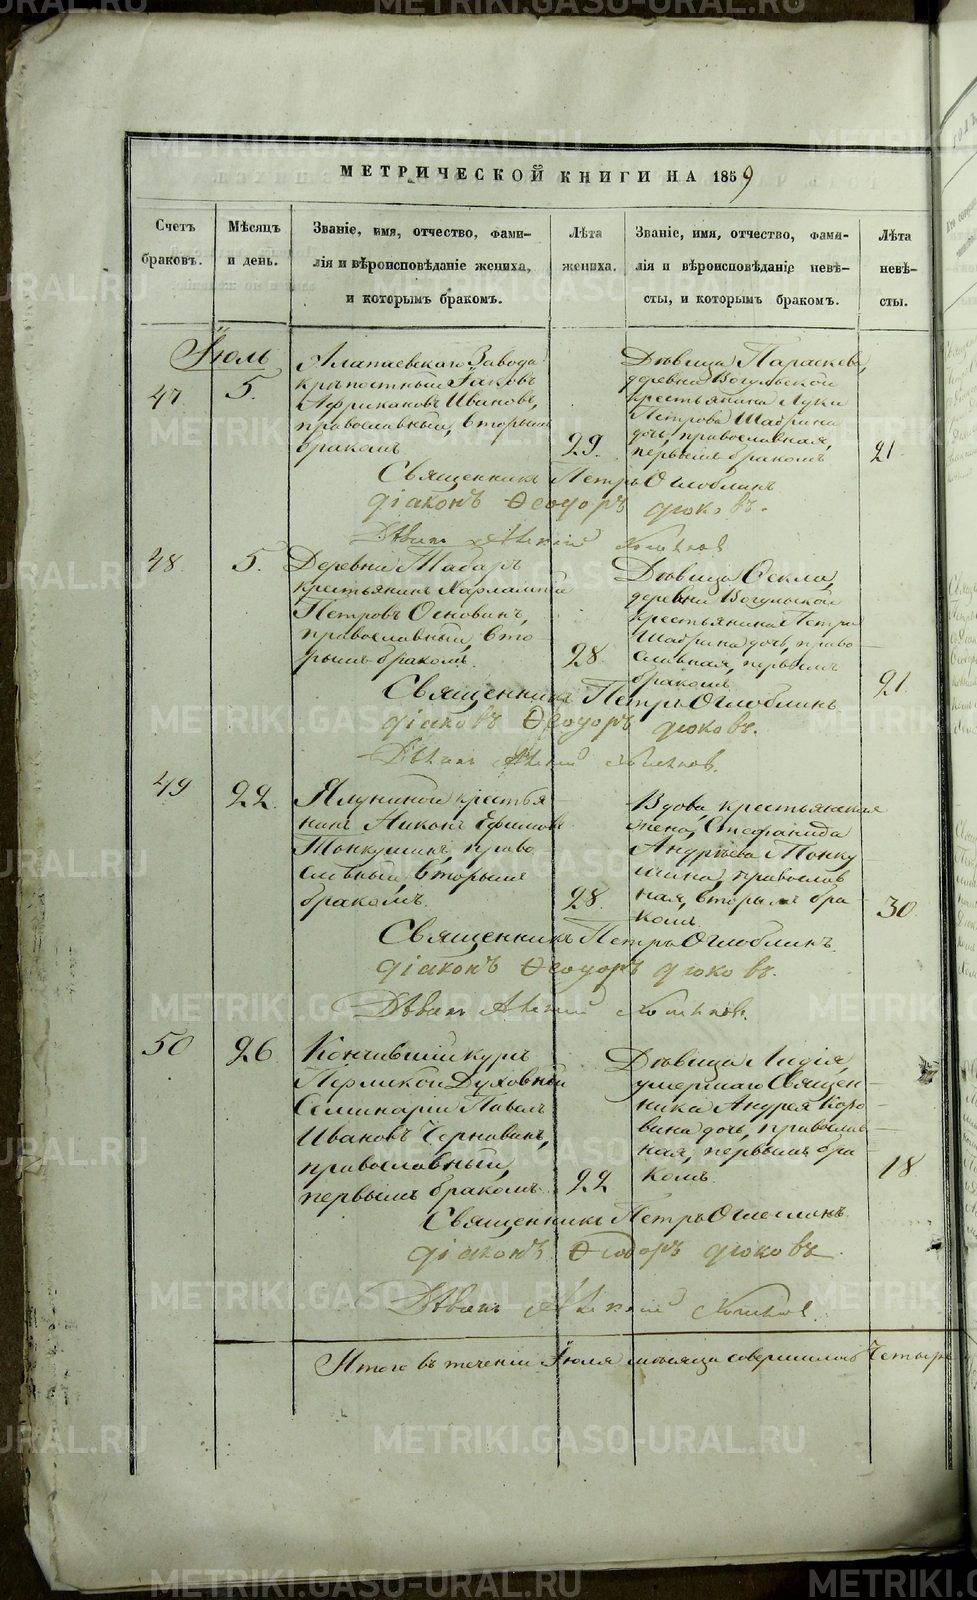 МЕТРИЧЕСКОЙ КНИГИ НА 1859
Счетъ браковъ.
Мѣсяцъ и день.
Званіе, имя, отчество, фами-
лія и вѣроисповѣданіе жениха,
и которымъ бракомъ.
Лѣта жениха.
Званіе, имя, отчество, фами-
лія и вѣроисповѣданіе невѣ-
сты, и которымъ бракомъ.
Лѣта невѣ-
сты.
Іюль
47.
5.
Алапаевскаго Завода
крѣпостный Іаковъ
Африкановъ Ивановъ,
православный, вторымъ
бракомъ
29.
Дѣвица Параскева,
деревни Вогульской
крестьянина Луки
Петрова Шабрина
дочь, православная,
первымъ бракомъ
21.
Священникъ Петръ Оглоблинъ
діаконъ Ѳеодоръ
48.
5.
Деревни Табаръ
крестьянинъ Харлампій
Петровъ Основинъ,
православный, вто
рымъ бракомъ.
28.
Дѣвица Ѳекла,
деревни Вогульской
крестьянина Петра
Шабрина дочь, право
славная, первымъ
бракомъ
21.
Священникъ Петръ Оглоблинъ
діаконъ Ѳеодоръ
49
22.
Ялуниной крестья
нинъ Никонъ Ефимовъ
Тонкушинъ, право
славный, вторымъ
бракомъ.
28.
Вдова, крестьянская
жена, Стефанида
Андреева Тонку
шина, православ
ная, вторымъ бра-
комъ
30.
Священникъ Петръ Оглоблинъ.
діаконъ Ѳеодоръ
50
26.
Кончившій курсъ
Пермской Духовной
Семинаріи Павелъ
Ивановъ Чернавинъ,
православный,
первымъ бракомъ.
22
Дѣвица Лидія,
умершаго Священ-
ника Андрея Коро
вина дочь, православ-
ная, первымъ бра-
комъ.
18.
Священникъ Петръ Оглоблинъ.
діаконъ Ѳеодоръ
Итого въ теченіи Іюля мѣсяца совершилось Четыре
METRIKI.GASO-URAL.RU